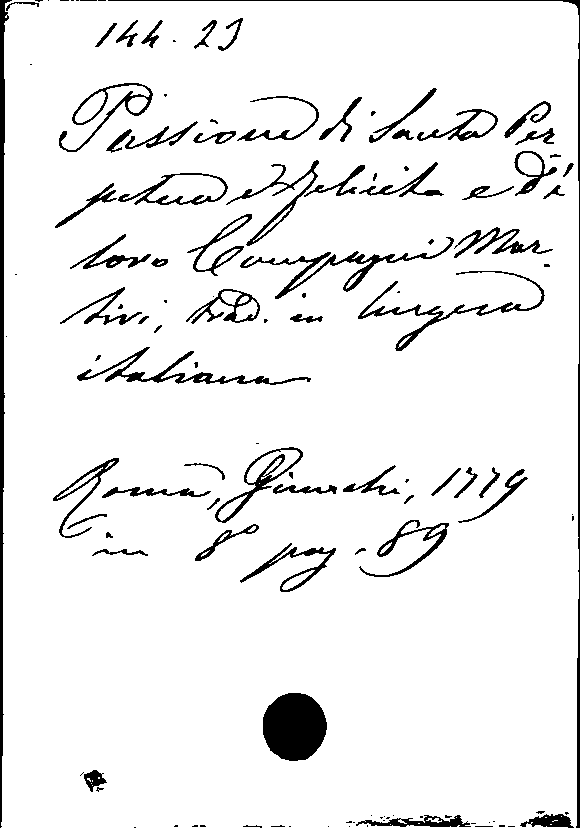 144. 23
Passione di Santa Per
petua e Felicita e di
loro Compagni Mar-
tiri, trad. in lingua
italiana
Roma, Giunchi, 1779
in 8° pag. 89